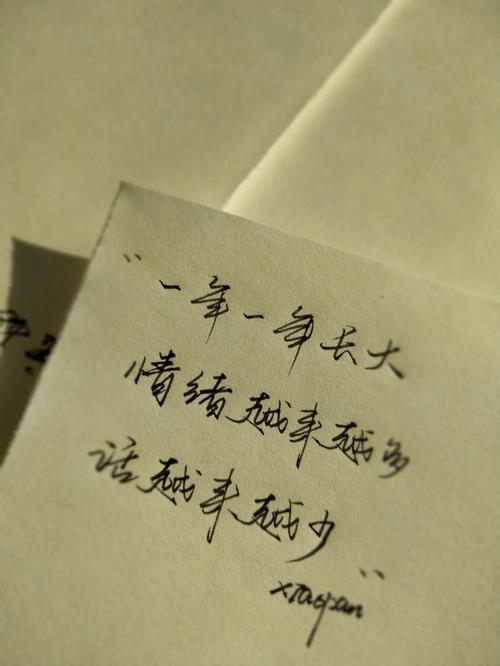 “一年一年长大
情绪越来越多
话越来越少”
xiaopan